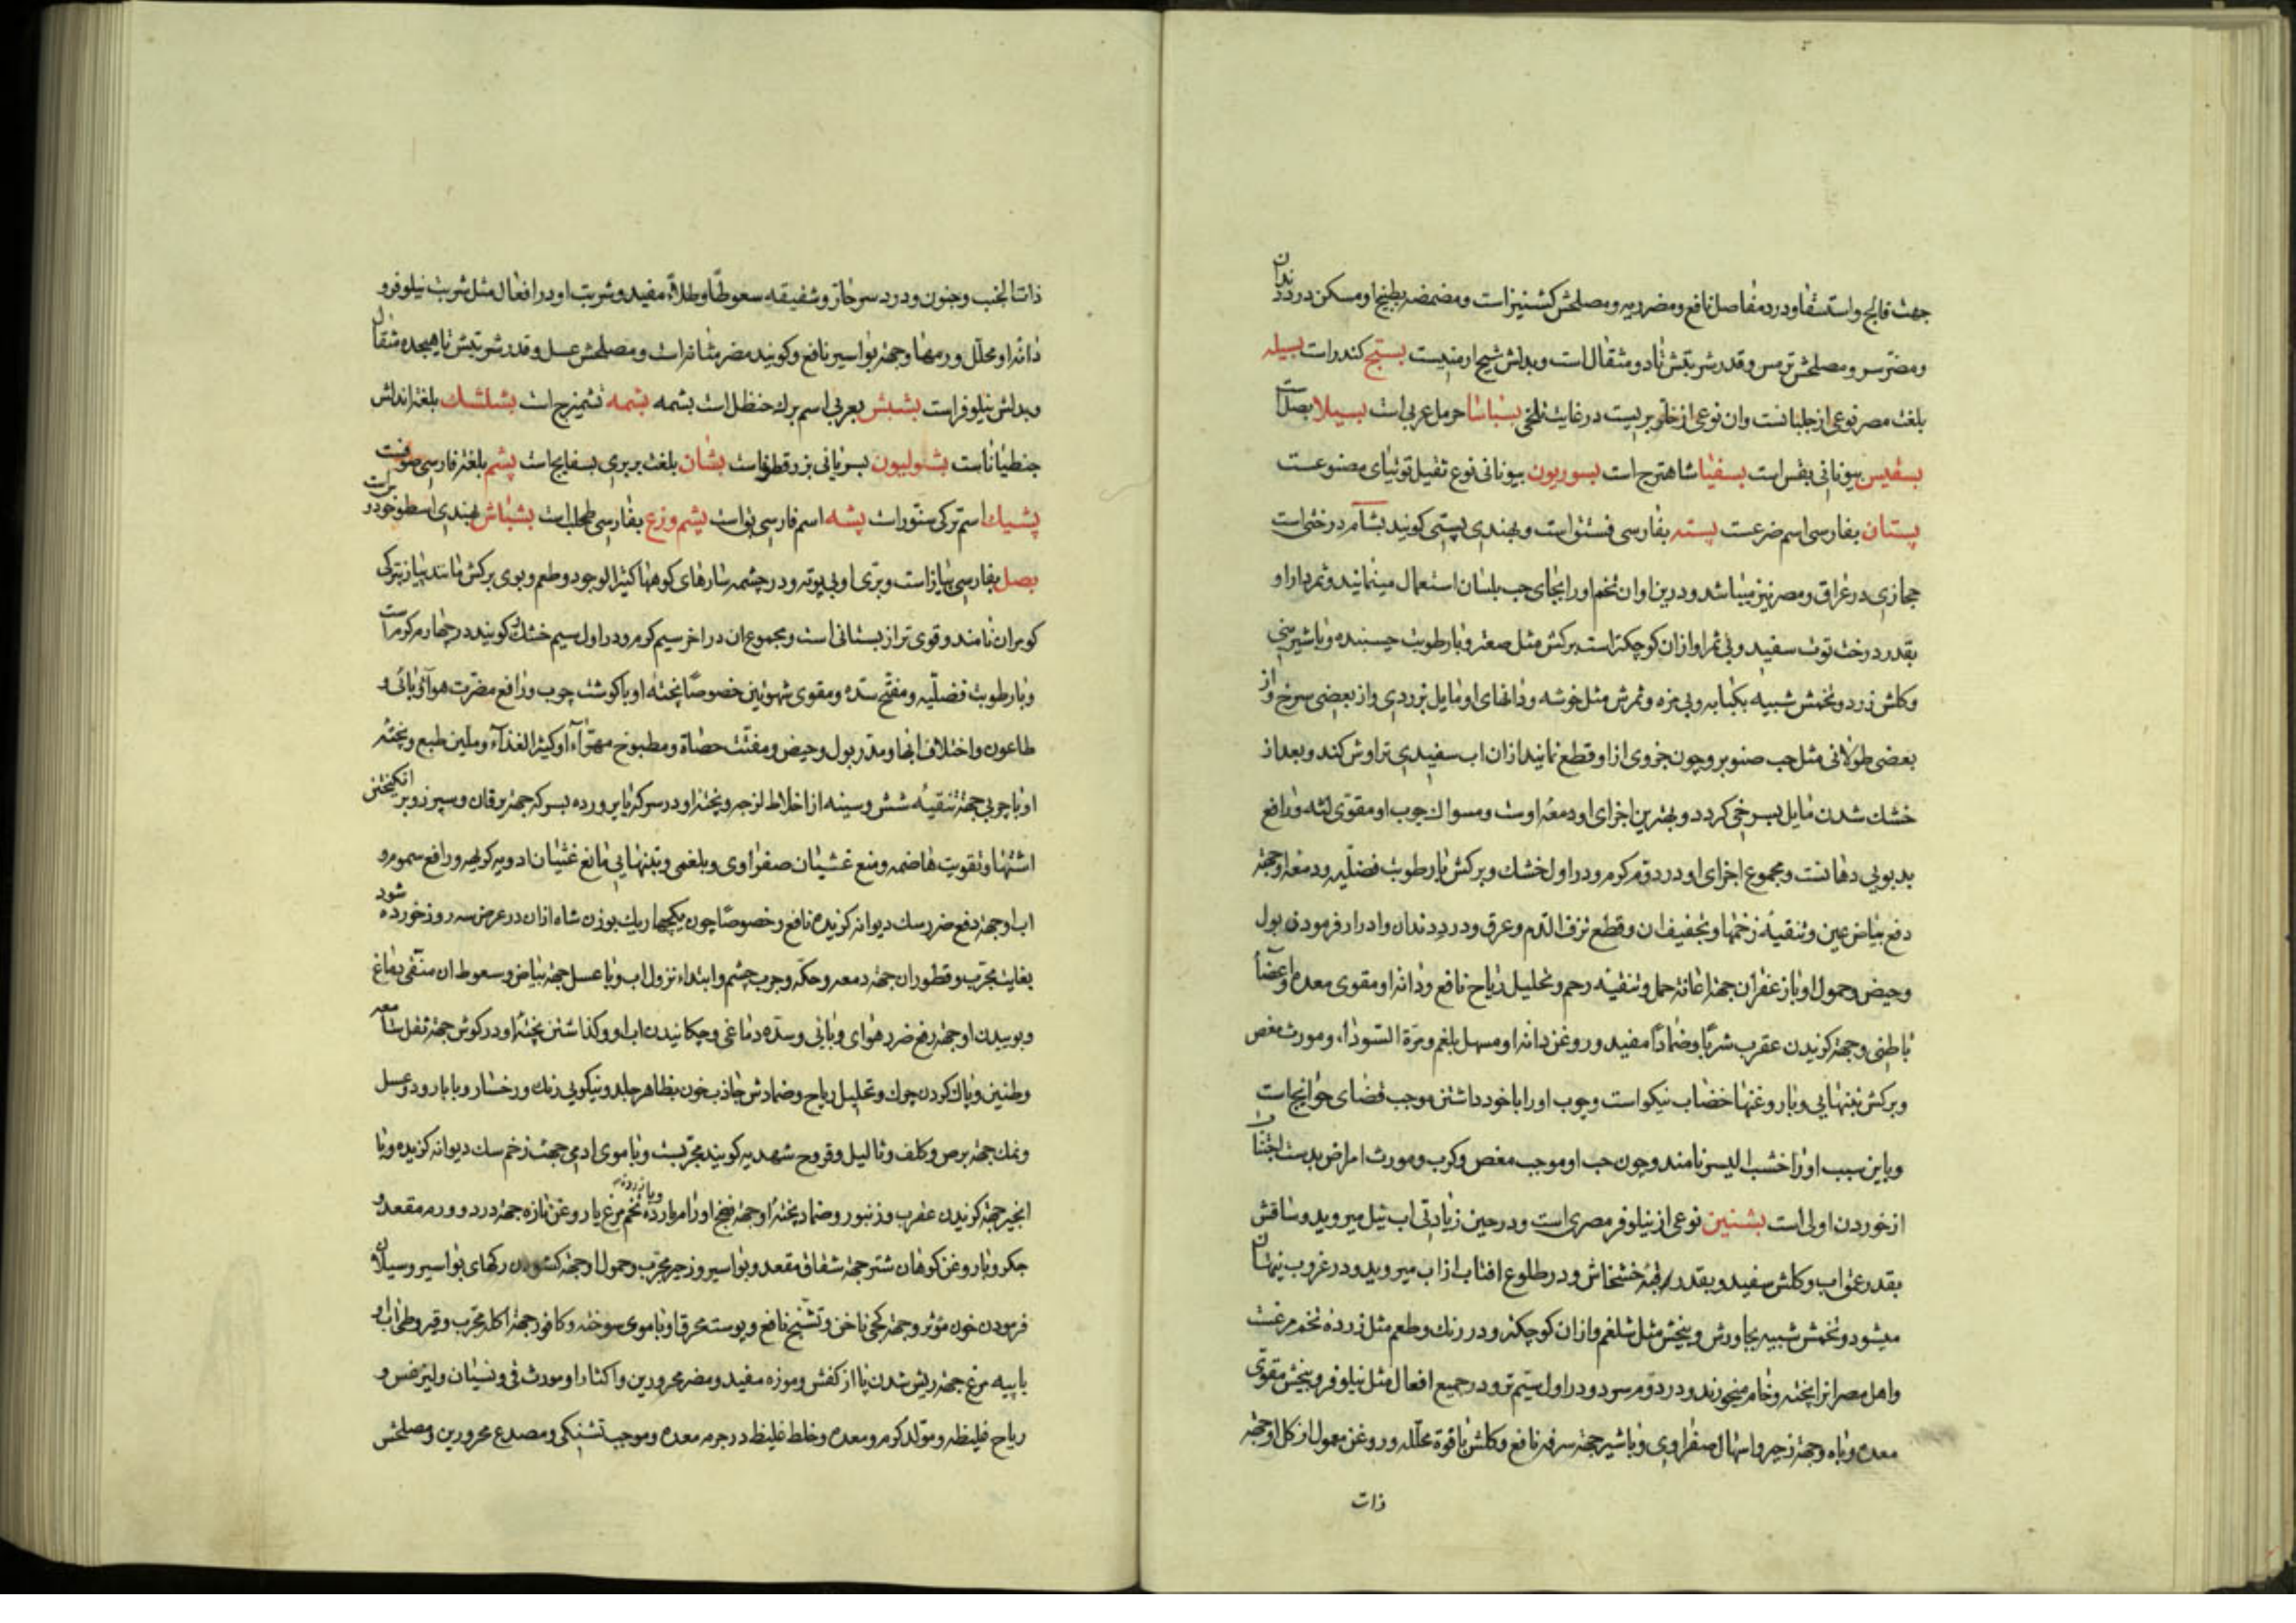 جهت فالج و استسقا و درد مفاصل نافع و مضر ریه و مصلحش کشنیز است و مضمضه بطبیخ او مسکن درد دندان
و مضر سر و مصلحش ترمس و قدر شربتش تا دو مثقال است و بدلش شیح ارمنیست بستج کندر است بسیله
بلغت مصر نوعی از جلبانست و ان نوعی از خلر بریست در غایت تلخی بسباسا حرمل عربی است بسیلا بصل است
بسفیس بیونانی بقس است بسفینا شاهترج است بسوریون بیونانی نوع ثقیل توتیای مصنوعست
پستان بفارسی اسم ضرعست پسته بفارسی فستق است و بهندی پستی کویند بشام درختی است
حجازی در عراق و مصر نیز میباشد و درین اوان تخم او را بجای حب بلسان استعمال مینمایند و ثمردار او
بقدر درخت توت سفید و بی ثمر او از ان کوچکتر است برکش مثل صعتر و با رطوبت چسبنده و با شیرینی
و کلش زرد و تخمش شبیه بکبابه و بی مزه و ثمرش مثل خوشه و دانهای او مایل بزردی و از بعضی سرخ و از
بعضی طولانی مثل حب صنوبر و چون جزوی از او قطع نمایند از ان اب سفیدی تراوش کند و بعد از
خشك شدن مایل بسرخی کردد و بهترین اجزای او دمعه اوست و مسواك چوب او مقوی لثه و رافع
بدبویی دهانست و مجموع اجزای او در دوم کرم و در اول خشك و برکش با رطوبت فضلیه و دمعه او جهة
دفع بیاض عین و تنقیه زخمها و تجفیف ان و قطع نزف الدم و عرق و درد دندان و ادرار فرمودن بول
و حیض و حمول او با زعفران جهة اعانه حمل و تنقیه رحم و تحلیل ریاح نافع و دانه او مقوی معده و اعضا
باطنی و جهة کزیدن عقرب شربا و ضمادا مفید و روغن دانه او مسهل بلغم و مرة السودا، و مورث مغص
و برکش بتنهایی و با روغنها خضاب نیکو است و چوب او را با خود داشتن موجب قضای حوایج است
و باین سبب او را خشب الیسر نامند و چون حب او موجب مغص و کرب و مورث امراض بدست اجتناب
از خوردن اولی است بشنین نوعی از نیلوفر مصری است و در حین زیادتی اب نیل میروید و ساقش
بقدر عمق اب و کلش سفید و بقدر قبه خشخاش و در طلوع افتاب از اب میروید و در غروب پنهان
میشود و تخمش شبیه بجاورش و بیخش مثل شلغم و از ان کوچکتر و در رنك و طعم مثل زرده تخم مرغست
و اهل مصر انرا پخته و خام میخورند و در دوم سرد و در اول سیم تر و در جمیع افعال مثل نیلوفر و بیخش مقوی
معده و باه و جهة زحیر و اسهال صفراوی و با شیر جهة سرفه نافع و کلش با قوة محلله و روغن معمول از کل او جهة
ذات
ذات الجنب و جنون و درد سر حار و شقیقه سعوطا و طلاء مفید و شربت او در افعال مثل شربت نیلوفر و
دانه او محلل ورمها و جهة بواسیر نافع و کویند مضر مثانه است و مصلحش عسل و قدر شربتش تا هیجده مثقال
و بدلش نیلوفر است بشبش بعربی اسم برك حنظل است بشمه بشمه تشمیزج است بشلشك بلغة اندلس
جنطیانا ست بشولیون بسریانی بزرقطونا ست بشان بلغت بربری بسفایج است پشم بلغة فارسی صوفست
پشیك اسم ترکی سنور است پشه اسم فارسی بق است پشم وزغ بفارسی طحلب است بشباش بهندی اسطوخودوس است
بصل بفارسی پیاز است و بری او بی بوته و در چشمه سارهای کوهها کثیر الوجود و طعم و بوی برکش مانند پیاز بترکی
کوبران نامند و قوی تر از بستانی است و مجموع ان در اخر سیم کرم و در اول سیم خشك و کویند در چهارم کرم است
و با رطوبت فضلیه و مفتح سده و مقوی شهوتین خصوصا پخته او با کوشت چوب و رافع مضرت هوای وبائی و
طاعون و اختلاف ابها و مدر بول و حیض و مفتت حصاة و مطبوخ مهرا او کثیر الغذاء و ملین طبع و پخته
او با چربی جهة تنقیه شش و سینه از اخلاط لزجه و پخته او در سرکه یا پرورده بسرکه جهة یرقان و سپرز و برانکیختن
اشتها و تقویت هاضمه و منع غشیان صفراوی و بلغمی و بتنهایی مانع غثیان ادویه کریهه و رافع سموم و
اب او جهة دفع ضرر سك دیوانه کزیده نافع و خصوصا چون یکچهاریك بوزن شاه ازان در عرض سه روز خورده شود
بغایت مجرب و قطور ان جهة دمعه و حکه و جرب چشم و ابتداء نزول اب و با عسل جهة بیاض و سعوط ان منقی دماغ
و بوییدن او جهة رفع ضرر هوای وبائی و سده دماغی و چکانیدن اب او و کذاشتن پخته او در کوش جهة ثقل سامعه
و طنین و پاك کردن چرك و تحلیل ریاح و ضمادش جاذب خون بظاهر جلد و نیکویی رنك رخسار و با بارود و عسل
و نمك جهة برص و کلف و ثالیل و قروح شهدیه کویند مجربست و با موی ادمی جهت زخم سك دیوانه کزیده و با
انجیر جهة کزیدن عقرب و زنبور و ضماد پخته او جهة نضج اورام بارده و با زرده تخم مرغ یا روغن تازه جهة درد و ورم مقعد و
جکر و با روغن کوهان شتر جهة شقاق مقعد و بواسیر و زحیر مجرب و حمول او جهة کشودن رکهای بواسیر و سیلان
فرمودن خون مؤثر و جهة کجی ناخن و تشنج نافع و پوست محرق او با موی سوخته و کافور جهة اکله مجرب و قیروطی اب او
با پیه مرغ جهة ریش شدن پا از کفش و موزه مفید و مضر محرورین و اکثار او مورث قی و نسیان و لیثرغس و
ریاح غلیظه و مولد کرم معده و خلط غلیظ در جرم معده و موجب تشنکی و مصدع محرورین و مصلحش